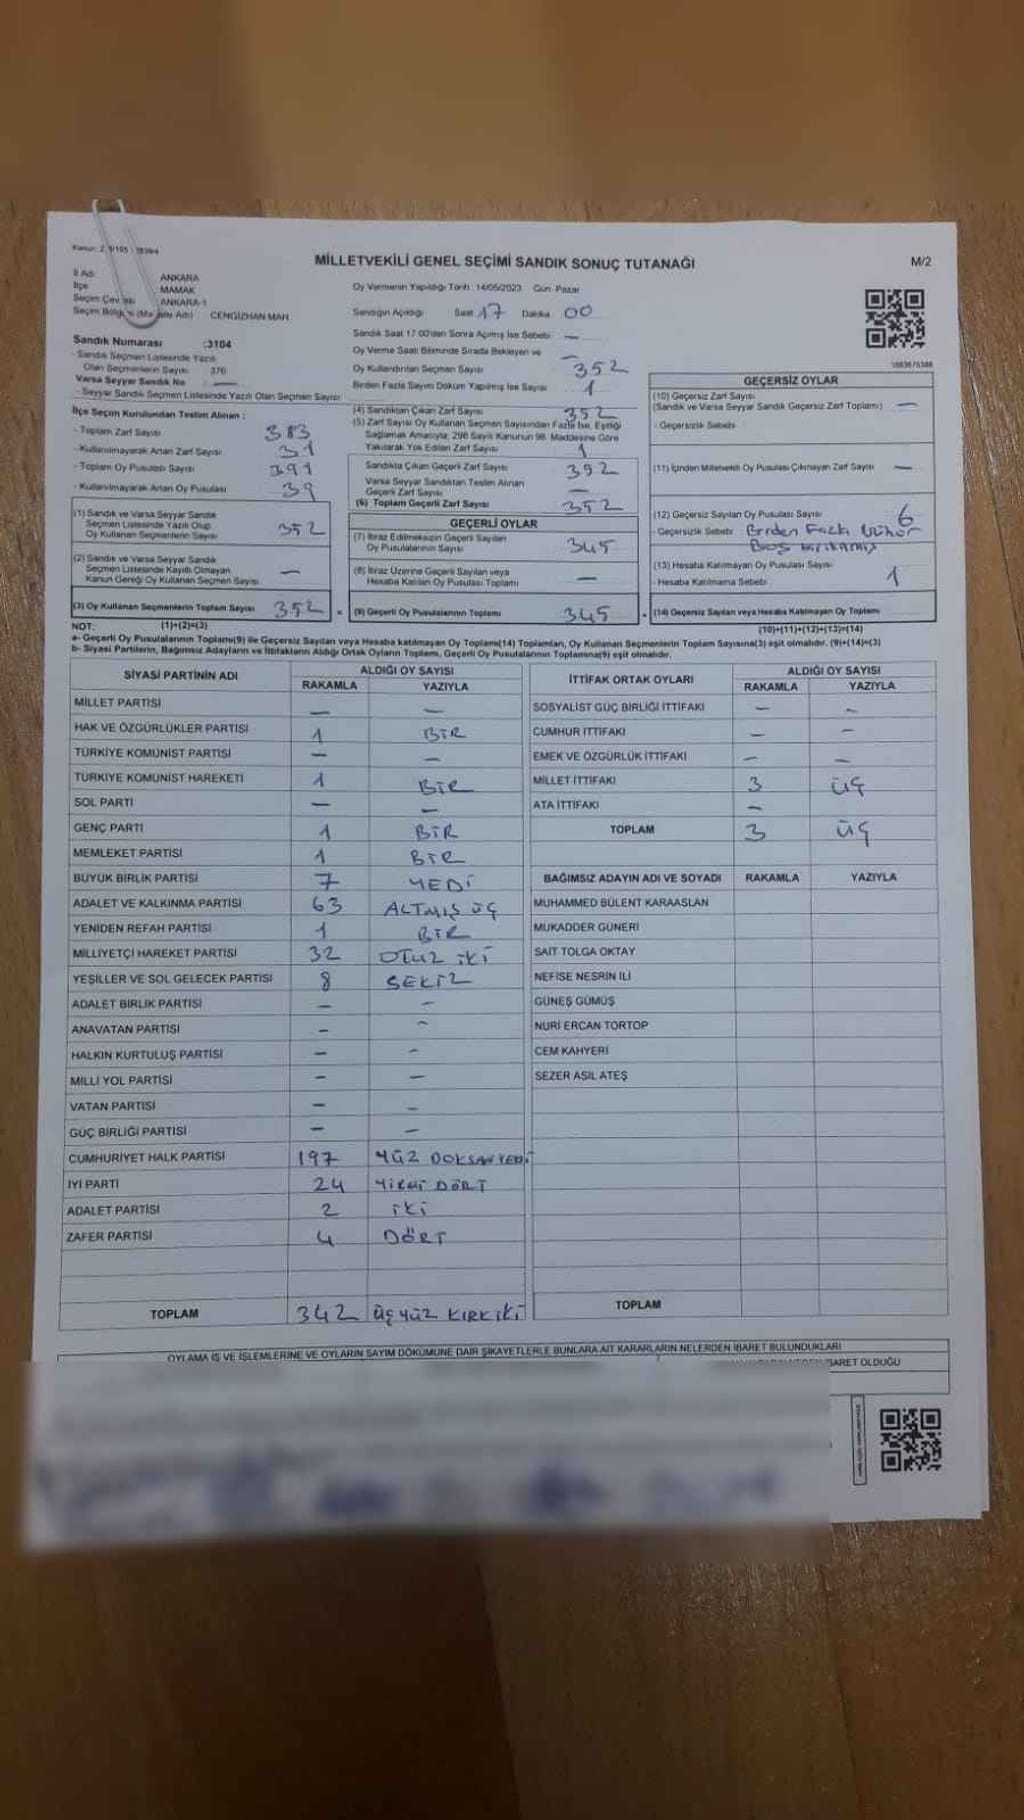 MİLLETVEKİLİ GENEL SEÇİMİ SANDIK SONUÇ TUTANAĞI
M/2
İl Adı ANKARA
İlçe MAMAK
ANKARA-1
CENGİZHAN MAH.
Oy Vermenin Yapıldığı Tarih : 14/05/2023 Gün: Pazar
Sandığın Açıldığı Saat 17 Dakika 00
Sandık Saat 17:00'dan Sonra Açılmış İse Sebebi: —
Oy Verme Saati Bitiminde Sırada Bekleyen ve
Oy Kullandırılan Seçmen Sayısı 352
Birden Fazla Sayım Döküm Yapılmış İse Sayısı 1
Sandık Numarası :3104
- Sandık Seçmen Listesinde Yazılı
Olan Seçmenlerin Sayısı 376
Varsa Seyyar Sandık No : —
- Seyyar Sandık Seçmen Listesinde Yazılı Olan Seçmen Sayısı
İlçe Seçim Kurulundan Teslim Alınan :
- Toplam Zarf Sayısı 383
- Kullanılmayarak Artan Zarf Sayısı 31
- Toplam Oy Pusulası Sayısı 391
- Kullanılmayarak Artan Oy Pusulası 39
(1) Sandık ve Varsa Seyyar Sandık
Seçmen Listesinde Yazılı Olup
Oy Kullanan Seçmenlerin Sayısı 352
(2) Sandık ve Varsa Seyyar Sandık
Seçmen Listesinde Kayıtlı Olmayan
Kanun Gereği Oy Kullanan Seçmen Sayısı —
(3) Oy Kullanan Seçmenlerin Toplam Sayısı 352
(4) Sandıktan Çıkan Zarf Sayısı 352
(5) Zarf Sayısı Oy Kullanan Seçmen Sayısından Fazla İse, Eşitliği
Sağlamak Amacıyla, 298 Sayılı Kanunun 98. Maddesine Göre
Yakılarak Yok Edilen Zarf Sayısı 1
Sandıkta Çıkan Geçerli Zarf Sayısı 352
Varsa Seyyar Sandıktan Teslim Alınan
Geçerli Zarf Sayısı —
(6) Toplam Geçerli Zarf Sayısı 352
GEÇERLİ OYLAR
(7) İtiraz Edilmeksizin Geçerli Sayılan
Oy Pusulalarının Sayısı 345
(8) İtiraz Üzerine Geçerli Sayılan veya
Hesaba Katılan Oy Pusulası Toplamı —
(9) Geçerli Oy Pusulalarının Toplamı 345
GEÇERSİZ OYLAR
(10) Geçersiz Zarf Sayısı
(Sandık ve Varsa Seyyar Sandık Geçersiz Zarf Toplamı) —
- Geçersizlik Sebebi:
(11) İçinden Milletvekili Oy Pusulası Çıkmayan Zarf Sayısı —
(12) Geçersiz Sayılan Oy Pusulası Sayısı 6
- Geçersizlik Sebebi: Birden Fazla
(13) Hesaba Katılmayan Oy Pusulası Sayısı 1
- Hesaba Katılmama Sebebi
(14) Geçersiz Sayılan veya Hesaba Katılmayan Oy Pusulası Toplamı
NOT: (1)+(2)=(3) (10)+(11)+(12)+(13)=(14)
a- Geçerli Oy Pusulalarının Toplamı(9) ile Geçersiz Sayılan veya Hesaba katılmayan Oy Toplamı(14) Toplamları, Oy Kullanan Seçmenlerin Toplam Sayısına(3) eşit olmalıdır. (9)+(14)=(3)
b- Siyasi Partilerin, Bağımsız Adayların ve İttifakların Aldığı Ortak Oyların Toplamı, Geçerli Oy Pusulalarının Toplamına(9) eşit olmalıdır.
SİYASİ PARTİNİN ADI ALDIĞI OY SAYISI
RAKAMLA YAZIYLA
MİLLET PARTİSİ — —
HAK VE ÖZGÜRLÜKLER PARTİSİ 1 BİR
TÜRKİYE KOMÜNİST PARTİSİ — —
TÜRKİYE KOMÜNİST HAREKETİ 1 BİR
SOL PARTİ — —
GENÇ PARTİ 1 BİR
MEMLEKET PARTİSİ 1 BİR
BÜYÜK BİRLİK PARTİSİ 7 YEDİ
ADALET VE KALKINMA PARTİSİ 63 ALTMIŞ ÜÇ
YENİDEN REFAH PARTİSİ 1 BİR
MİLLİYETÇİ HAREKET PARTİSİ 32 OTUZ İKİ
YEŞİLLER VE SOL GELECEK PARTİSİ 8 SEKİZ
ADALET BİRLİK PARTİSİ — —
ANAVATAN PARTİSİ — —
HALKIN KURTULUŞ PARTİSİ — —
MİLLİ YOL PARTİSİ — —
VATAN PARTİSİ — —
GÜÇ BİRLİĞİ PARTİSİ — —
CUMHURİYET HALK PARTİSİ 197 YÜZ DOKSAN YEDİ
İYİ PARTİ 24 YİRMİ DÖRT
ADALET PARTİSİ 2 İKİ
ZAFER PARTİSİ 4 DÖRT
TOPLAM 342 ÜÇ YÜZ KIRK İKİ
İTTİFAK ORTAK OYLARI ALDIĞI OY SAYISI
RAKAMLA YAZIYLA
SOSYALİST GÜÇ BİRLİĞİ İTTİFAKI — —
CUMHUR İTTİFAKI — —
EMEK VE ÖZGÜRLÜK İTTİFAKI — —
MİLLET İTTİFAKI 3 ÜÇ
ATA İTTİFAKI —
TOPLAM 3 ÜÇ
BAĞIMSIZ ADAYIN ADI VE SOYADI RAKAMLA YAZIYLA
MUHAMMED BÜLENT KARAASLAN
MUKADDER GÜNERİ
SAİT TOLGA OKTAY
NEFİSE NESRİN İLİ
GÜNEŞ GÜMÜŞ
NURİ ERCAN TORTOP
CEM KAHYERİ
SEZER ASIL ATEŞ
TOPLAM
OYLAMA İŞ VE İŞLEMLERİNE VE OYLARIN SAYIM DÖKÜMÜNE DAİR ŞİKAYETLERLE BUNLARA AİT KARARLARIN NELERDEN İBARET BULUNDUKLARI
İBARET OLDUĞU